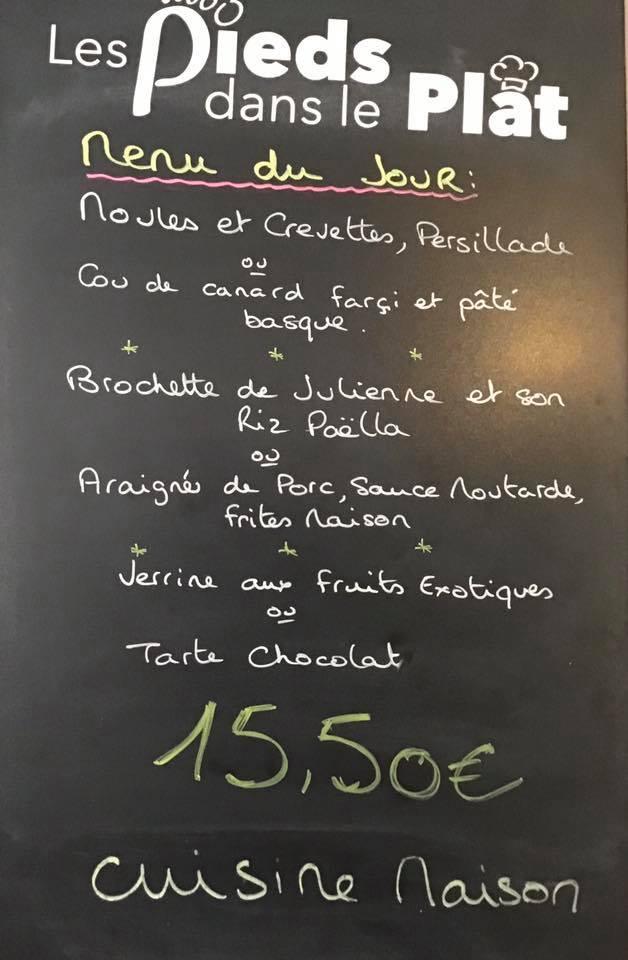 Les Pieds
dans le Plat
Menu du Jour:
Moules et Crevettes, Persillade
ou
Cou de canard farçi et pâté
basque.
* * *
Brochette de Julienne et son
Riz Paëlla
ou
Araignée de Porc, Sauce Moutarde,
frites Maison
* * *
Verrine aux fruits Exotiques
ou
Tarte Chocolat
15,50€
cuisine Maison